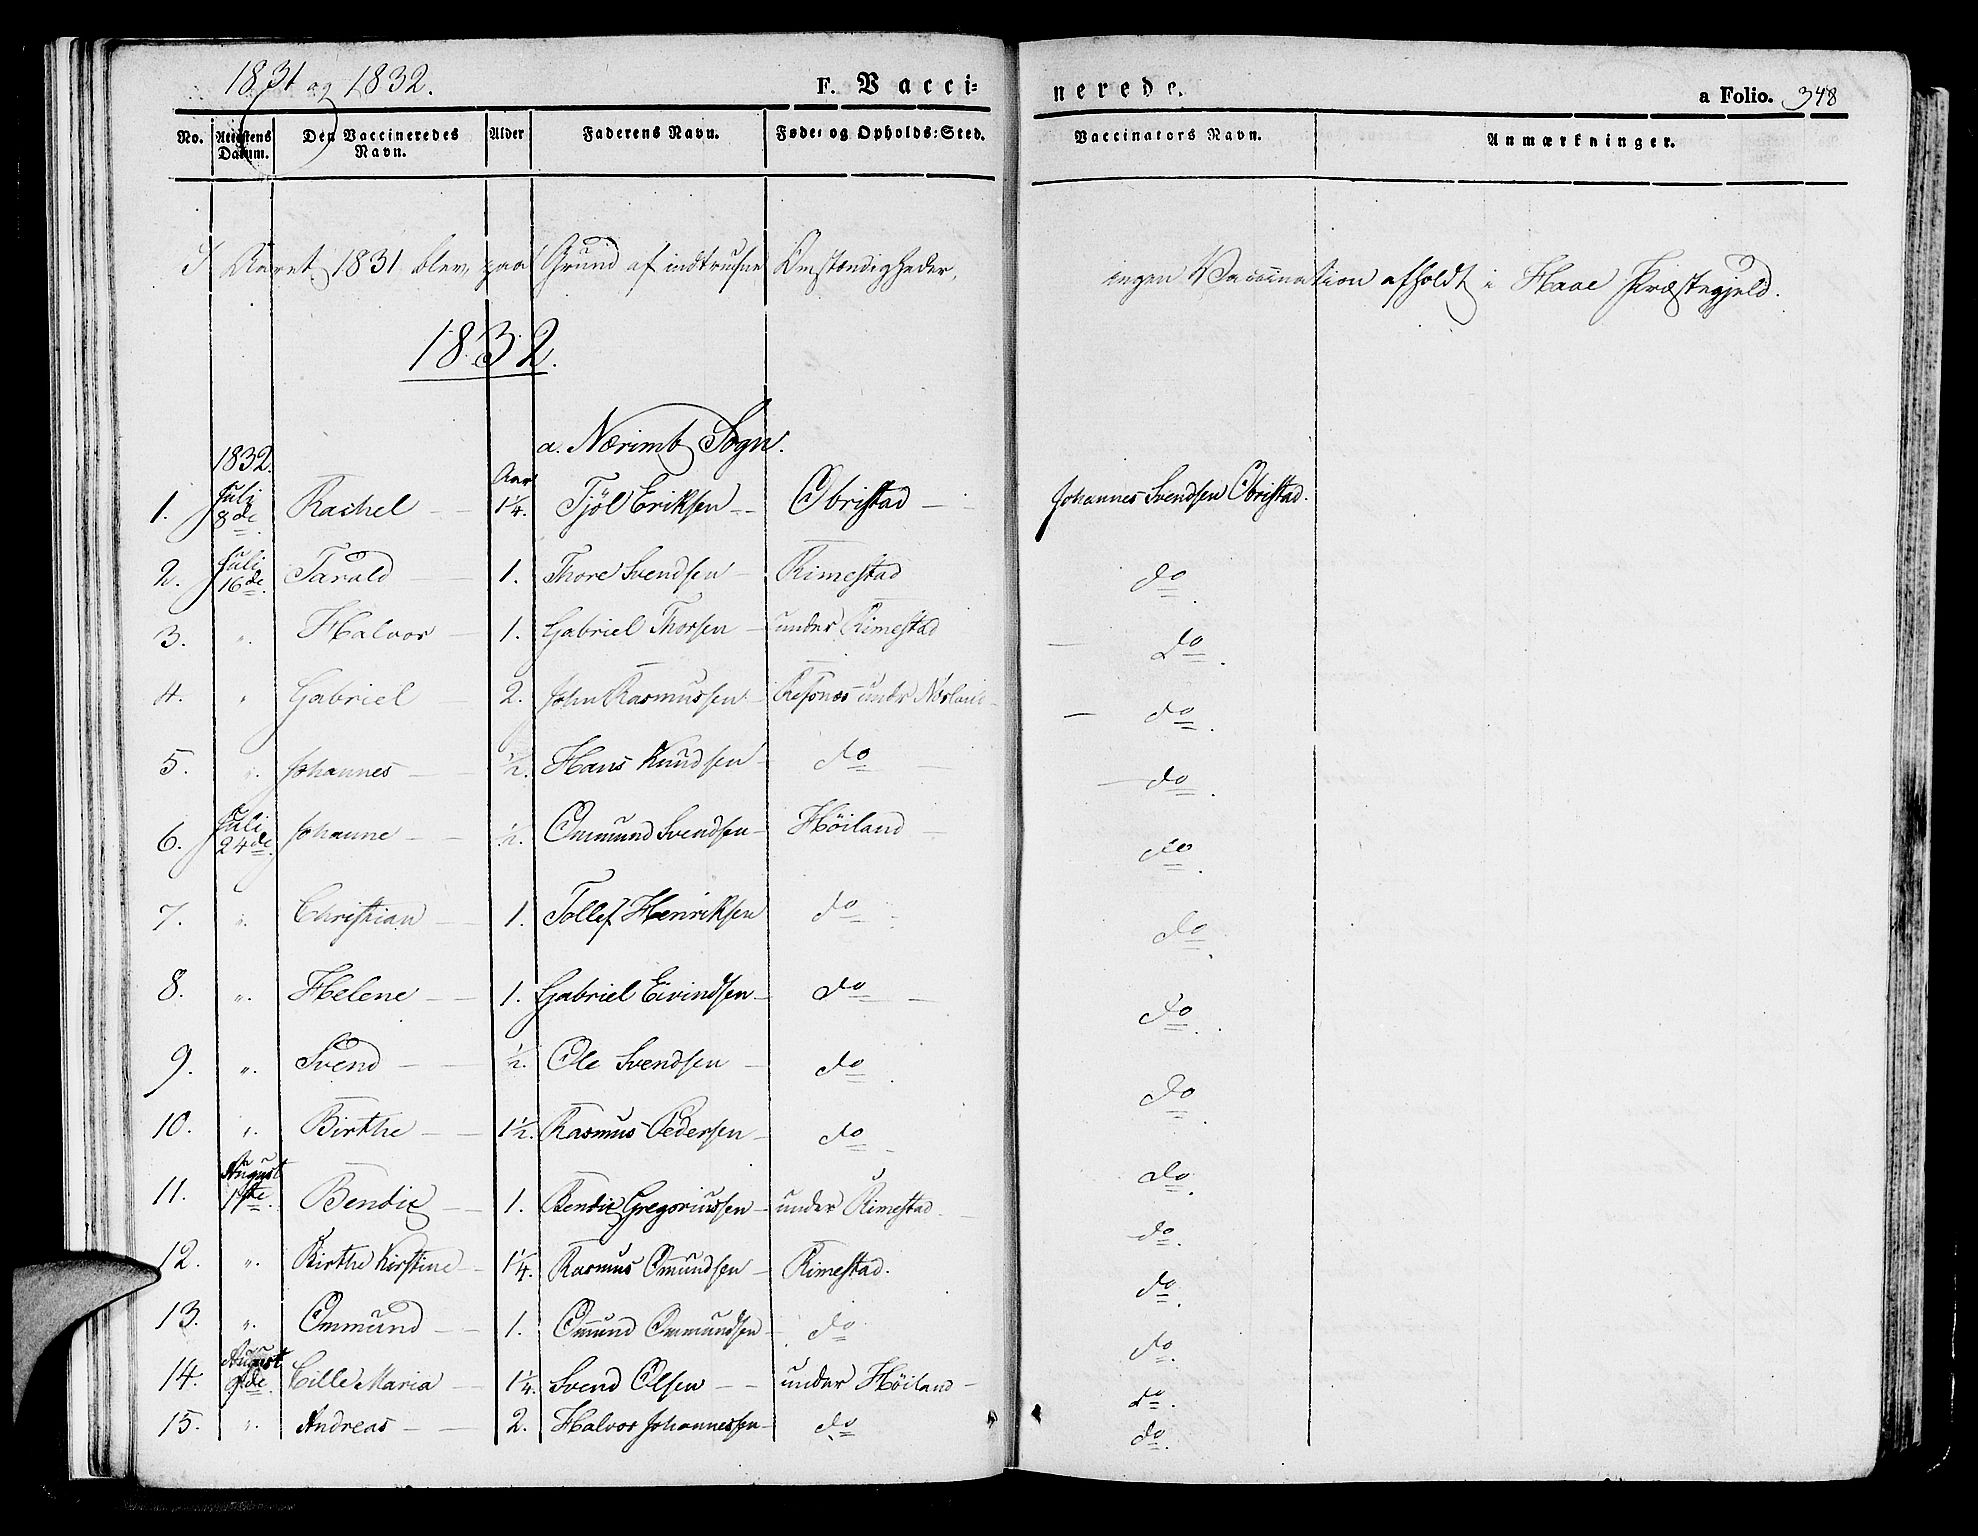 1831 og 1832.
F. Vacci-
nerede.
a Folio. 348
No. Attestens Datum. Den Vaccineredes Navn. Alder Faderens Navn. Føde- og Opholds-Sted. Vaccinators Navn. Anmærkninger.
I Aaret 1831 blev paa Grund af indtrufne Omstændigheder, ingen Vaccination afholdt i Haae Præstegjeld.
1832.
a. Nærimb Sogn.
1832.
Aar
1. Juli 8de. Rachel 1¼. Tjöl Eriksen Obristad Johannes Svendsen Obristad.
2. Juli 16de. Tarald 1. Thore Svendsen Rimestad do.
3. ". Halvor 1. Gabriel Thorsen under Rimestad do.
4. " Gabriel 2. John Rasmussen under do.
5. ". Johannes ½. Hans Knudsen do do.
6. Juli 24de. Johanne ½. Ommund Svendsen Höiland do.
7. ". Christian 1. Tollef Henriksen do do.
8. ". Helene 1. Gabriel Eivindsen do do.
9. ". Svend ½. Ole Svendsen do do.
10. ". Birthe 1½. Rasmus Pedersen do do.
11. August 1ste. Bendix 1. Bendix Gregoriussen under Rimestad do.
12. ". Birthe Kirstine 1¼. Rasmus Omundsen Rimestad. do.
13. ". Ommund 1. Omund Ommundsen do do.
14. August 9de. Cille Maria 1¼. Svend Olsen under Höiland do.
15. ". Andreas 2. Halvor Johannessen do do.